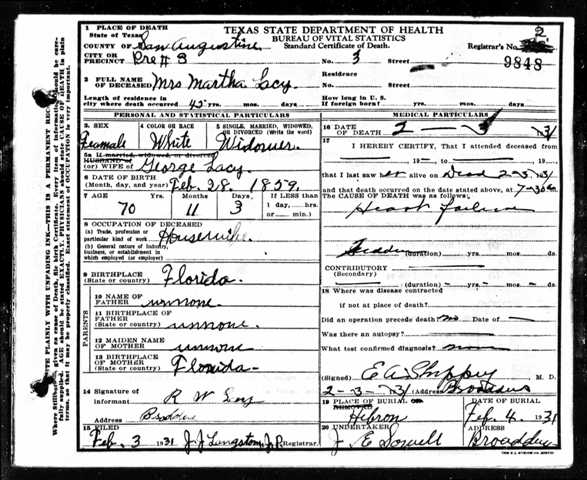 TEXAS STATE DEPARTMENT OF HEALTH
BUREAU OF VITAL STATISTICS
Standard Certificate of Death.
1 PLACE OF DEATH
State of Texas,
COUNTY OF San Augustine
Registrar's No. 2
CITY OR PRECINCT Pre # 3 No. 3 Street 9848
2 FULL NAME OF DECEASED Mrs Martha Lacy Residence No. Street
Length of residence in city where death occurred 45 yrs. mos. days How long in U. S. if foreign born? yrs. mos. days
PERSONAL AND STATISTICAL PARTICULARS
3 SEX Feamale
4 COLOR OR RACE White
5 SINGLE, MARRIED, WIDOWED, OR DIVORCED (Write the word) Widower.
5a If married, widowed, or divorced
HUSBAND OF (or) WIFE OF George Lacy
6 DATE OF BIRTH (Month, day, and year) Feb. 28. 1859.
7 AGE 70 YEARS 11 Months 3 Days If LESS than 1 day,....hrs. or .... min.
8 OCCUPATION OF DECEASED
(a) Trade, profession or particular kind of work Housewife
(b) General nature of Industry, business, or establishment in which employed (or employer)
9 BIRTHPLACE (State or country) Florida.
PARENTS
10 NAME OF FATHER unnone
11 BIRTHPLACE OF FATHER (State or country) unnone.
12 MAIDEN NAME OF MOTHER unnone
13 BIRTHPLACE OF MOTHER (State or country) Florida
14 Signature of informant R W
Address
15 FILED Feb. 3 1931 J. J. Livingston J.P. Registrar.
MEDICAL PARTICULARS
16 DATE OF DEATH 2 — 3 — 31
17 I HEREBY CERTIFY, That I attended deceased from
19 to 19
that I last saw er alive on Dead 2-3-31
and that death occurred on the date stated above, at 7-30 a m
The CAUSE OF DEATH was as follows:
Heart failure
(duration) yrs. mos. ds.
CONTRIBUTORY (Secondary)
(duration) yrs. mos. ds.
18 Where was disease contracted
if not at place of death?
Did an operation precede death? no Date of
Was there an autopsy?
What test confirmed diagnosis?
(Signed) E A M. D.
2-3-31 (Address) Broaddus
19 PLACE OF BURIAL Hebron
DATE OF BURIAL Feb. 4. 1931
20 UNDERTAKER J E Sowell
ADDRESS Broaddus